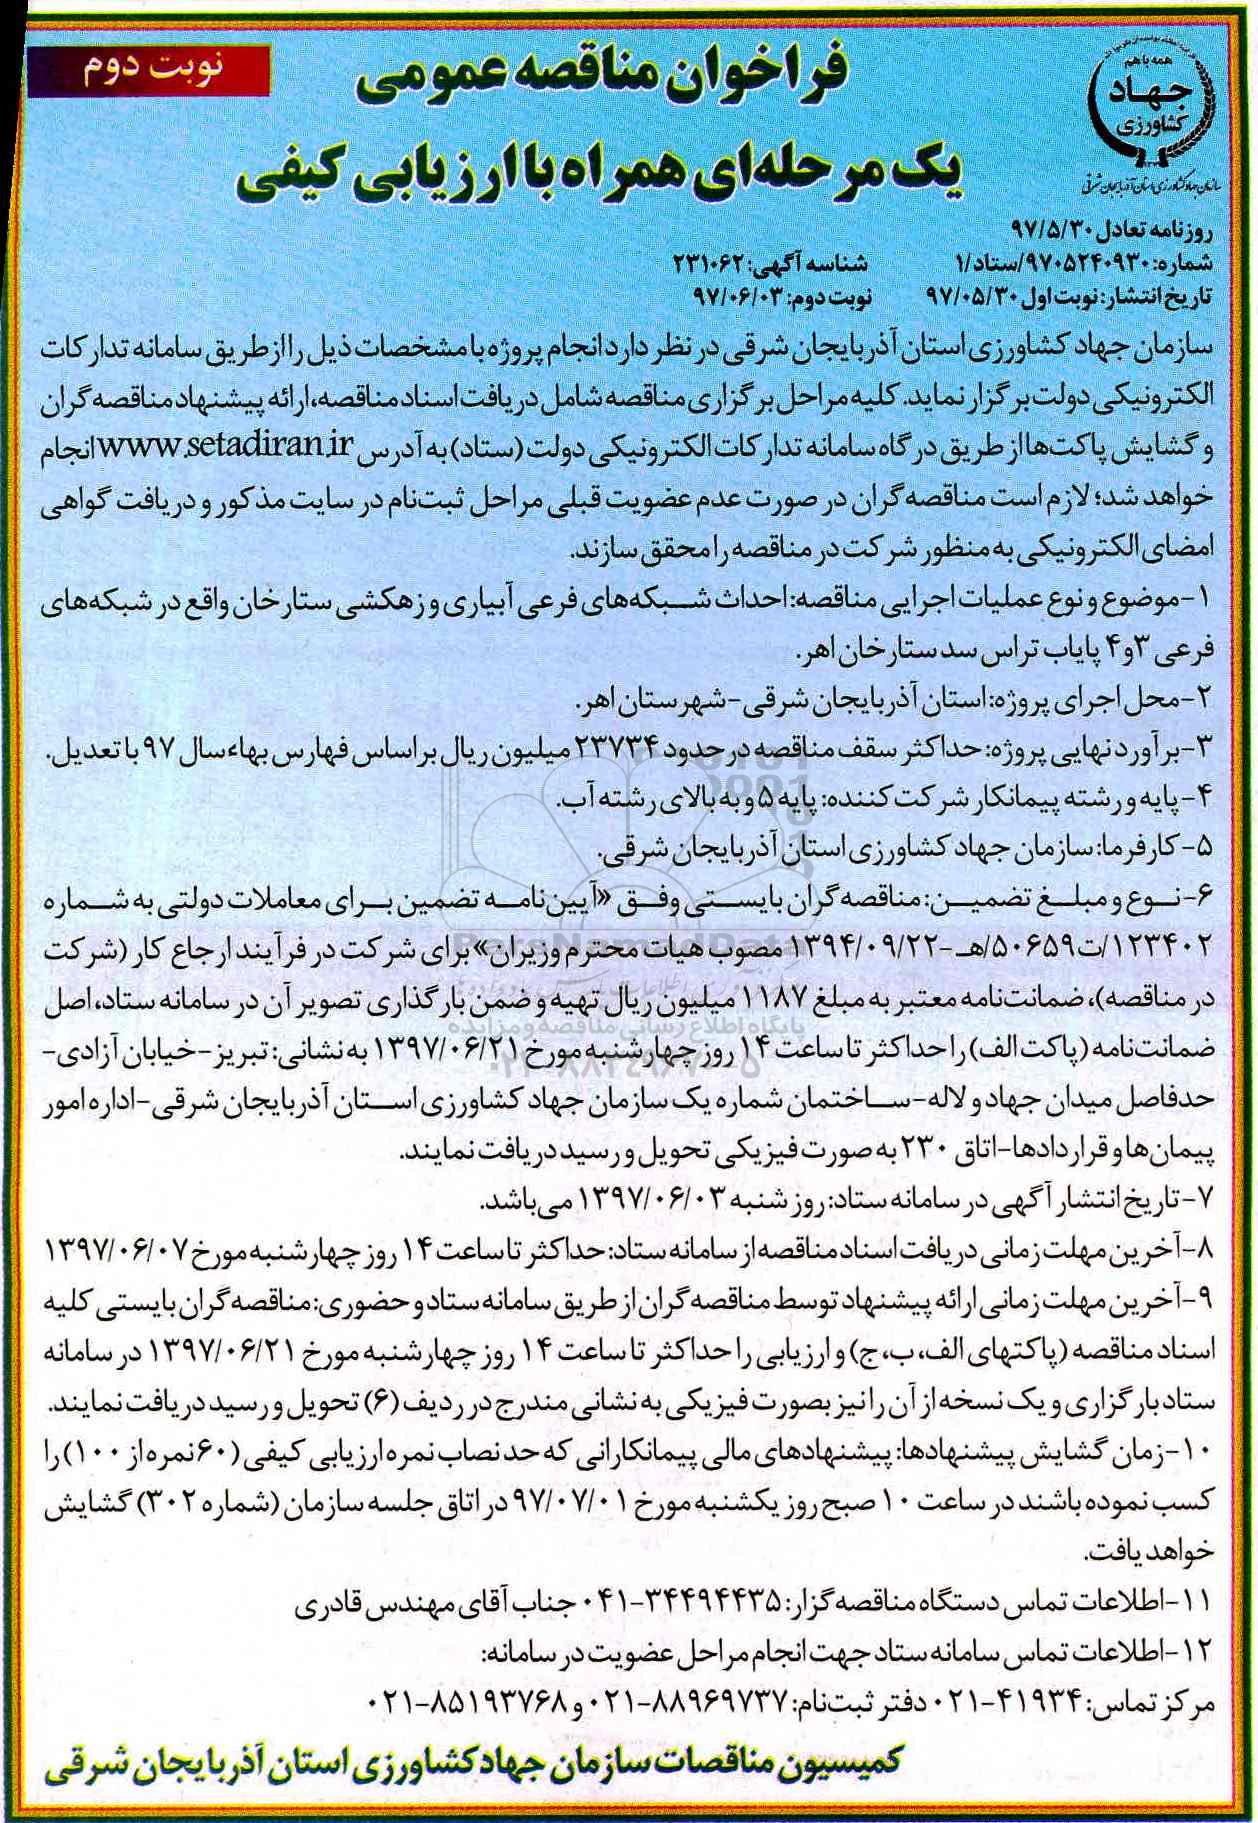 نوبت دوم
فراخوان مناقصه عمومی
یک مرحله‌ای همراه با ارزیابی کیفی
همه با هم
جهاد
کشاورزی
سازمان جهاد کشاورزی استان آذربایجان شرقی
روزنامه تعادل ۹۷/۵/۳۰
شماره: ۹۷۰۵۲۴۰۹۳۰/ستاد/۱ شناسه آگهی: ۲۳۱۰۶۲
تاریخ انتشار: نوبت اول ۹۷/۰۵/۳۰ نوبت دوم: ۹۷/۰۶/۰۳
سازمان جهاد کشاورزی استان آذربایجان شرقی در نظر دارد انجام پروژه با مشخصات ذیل را از طریق سامانه تدارکات
الکترونیکی دولت برگزار نماید. کلیه مراحل برگزاری مناقصه شامل دریافت اسناد مناقصه، ارائه پیشنهاد مناقصه گران
و گشایش پاکت‌ها از طریق درگاه سامانه تدارکات الکترونیکی دولت (ستاد) به آدرس www.setadiran.ir انجام
خواهد شد؛ لازم است مناقصه گران در صورت عدم عضویت قبلی مراحل ثبت‌نام در سایت مذکور و دریافت گواهی
امضای الکترونیکی به منظور شرکت در مناقصه را محقق سازند.
۱-موضوع و نوع عملیات اجرایی مناقصه: احداث شبکه‌های فرعی آبیاری و زهکشی ستارخان واقع در شبکه‌های
فرعی ۳و۴ پایاب تراس سد ستارخان اهر.
۲-محل اجرای پروژه: استان آذربایجان شرقی-شهرستان اهر.
۳-برآورد نهایی پروژه: حداکثر سقف مناقصه در حدود ۲۳۷۳۴ میلیون ریال بر اساس فهارس بهاء سال ۹۷ با تعدیل.
۴-پایه و رشته پیمانکار شرکت کننده: پایه ۵ و به بالای رشته آب.
۵-کارفرما: سازمان جهاد کشاورزی استان آذربایجان شرقی.
۶-نوع و مبلغ تضمین: مناقصه گران بایستی وفق «آیین‌نامه تضمین برای معاملات دولتی به شماره
۱۲۳۴۰۲/ت۵۰۶۵۹/هـ-۱۳۹۴/۰۹/۲۲ مصوب هیات محترم وزیران» برای شرکت در فرآیند ارجاع کار (شرکت
در مناقصه)، ضمانت‌نامه معتبر به مبلغ ۱۱۸۷ میلیون ریال تهیه و ضمن بارگذاری تصویر آن در سامانه ستاد، اصل
ضمانت‌نامه (پاکت الف) را حداکثر تا ساعت ۱۴ روز چهارشنبه مورخ ۱۳۹۷/۰۶/۲۱ به نشانی: تبریز-خیابان آزادی-
حدفاصل میدان جهاد و لاله-ساختمان شماره یک سازمان جهاد کشاورزی استان آذربایجان شرقی-اداره امور
پیمان‌ها و قراردادها-اتاق ۲۳۰ به صورت فیزیکی تحویل و رسید دریافت نمایند.
۷-تاریخ انتشار آگهی در سامانه ستاد: روز شنبه ۱۳۹۷/۰۶/۰۳ می‌باشد.
۸-آخرین مهلت زمانی دریافت اسناد مناقصه از سامانه ستاد: حداکثر تا ساعت ۱۴ روز چهارشنبه مورخ ۱۳۹۷/۰۶/۰۷
۹-آخرین مهلت زمانی ارائه پیشنهاد توسط مناقصه گران از طریق سامانه ستاد و حضوری: مناقصه گران بایستی کلیه
اسناد مناقصه (پاکتهای الف، ب، ج) و ارزیابی را حداکثر تا ساعت ۱۴ روز چهارشنبه مورخ ۱۳۹۷/۰۶/۲۱ در سامانه
ستاد بارگزاری و یک نسخه از آن را نیز بصورت فیزیکی به نشانی مندرج در ردیف (۶) تحویل و رسید دریافت نمایند.
۱۰-زمان گشایش پیشنهادها: پیشنهادهای مالی پیمانکارانی که حد نصاب نمره ارزیابی کیفی (۶۰ نمره از ۱۰۰) را
کسب نموده باشند در ساعت ۱۰ صبح روز یکشنبه مورخ ۹۷/۰۷/۰۱ در اتاق جلسه سازمان (شماره ۳۰۲) گشایش
خواهد یافت.
۱۱-اطلاعات تماس دستگاه مناقصه گزار: ۳۴۴۹۴۴۳۵-۰۴۱ جناب آقای مهندس قادری
۱۲-اطلاعات تماس سامانه ستاد جهت انجام مراحل عضویت در سامانه:
مرکز تماس: ۴۱۹۳۴-۰۲۱ دفتر ثبت‌نام: ۸۸۹۶۹۷۳۷-۰۲۱ و ۸۵۱۹۳۷۶۸-۰۲۱
کمیسیون مناقصات سازمان جهاد کشاورزی استان آذربایجان شرقی
پایگاه اطلاع رسانی مناقصه و مزایده